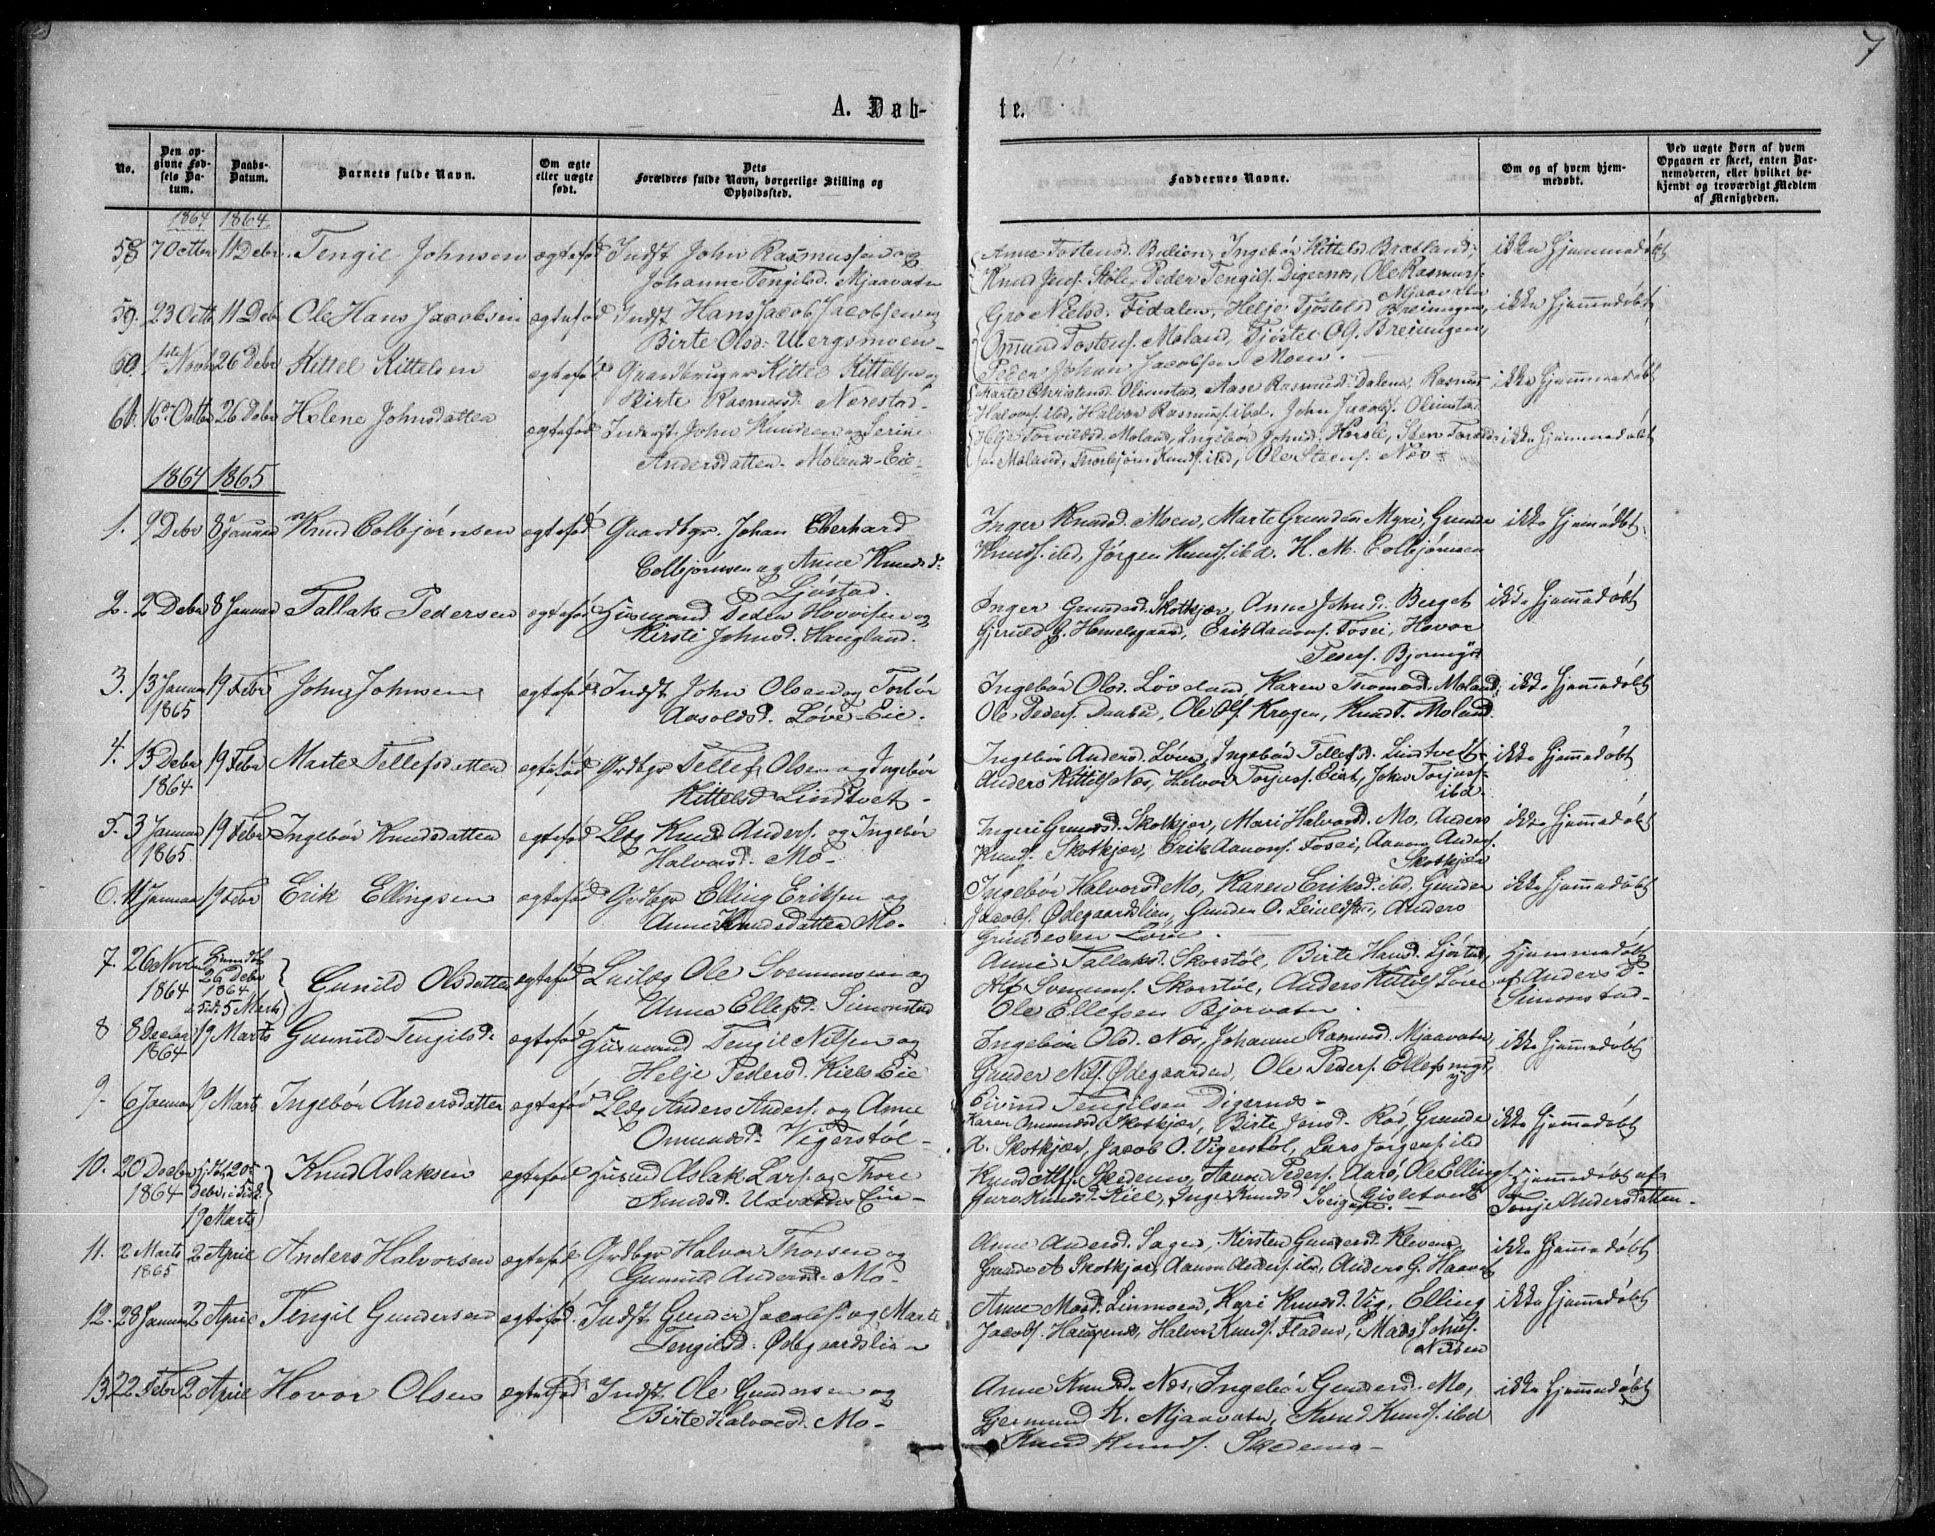 7
A. Døb-
te.
No.
Den op-
givne Fød-
sels Da-
tum.
Daabs-
Datum.
Barnets fulde Navn.
Om ægte
eller uægte
født.
Dets
Forældres fulde Navn, borgerlige Stilling og
Opholdssted.
Faddernes Navne.
Om og af hvem hjem-
medøbt.
Ved uægte Børn af hvem
Opgaven er skeet, enten Bar-
nemoderen, eller hvilket be-
kjendt og troværdigt Medlem
af Menigheden.
1864 1864
58 7 Octbr 11 Debr Tengil Johnsen ægtefød Indst John Rasmussen og
Johanne Tengilsd. Mjaavatn
Anne Tostensd. Ingebør Kittelsd. Bratland,
Knud Jens. Støle, Peder Tengils. Digernæs, Ole Rasmus.
Mjaavatn
ikke hjemmedøbt
59. 23 Octb 11 Deb Ole Hans Jacobsen ægtefød Indst Hans Jacob Jacobsen og
Birte Olsd. Ubergsmoen
Gro Nielsd. Fidalen, Helje Tjøstelsd Breiungen,
Omund Tostens. Moland, Tjøstel O. Breiungen,
Peder Johan Jacobsen Moen.
ikke hjemmedøbt
60. 1ste Novbr 26 Debr Kittel Kittelsen ægtefød Gaardbruger Kittel Kittelsen og
Birte Rasmusd. Nærestad
Marte Christensd. Olimstad, Aase Rasmusd. Dalene, Rasmus
Halvors. ibd, Halvor Rasmus. ibd. John Jacobs. Olimstad
ikke hjemmedøbt
61. 16 Octbr 26 Debr Helene Johnsdatter ægtefød Inderst John Knudsen og Serine
Andersdatter. Moland-Eie
Helje Torvildsd. Moland, Ingebør Johnsd. Sten
Moland, Thorbjørn Knuds. ibd, Ole Steens. Næs
ikke hjemmedøbt
1864 1865
1. 9 Debr 8 Januar Knud Colbjørnsen ægtefød Gaardbgr. Johan Eberhard
Colbjørnsen og Anne Knudsd.
Ljøstad.
Inger Knudsd. Moen, Marte Myre, Grunde
Knuds. ibd, Jørgen Knuds. ibd. K. M. Colbjørnsen
ikke hjemmedøbt
2. 2 Debr 8 Januar Tallak Pedersen ægtefød Husmand Peder Hovorsen og
Kirsti Johnsd. Haugland.
Inger Grundesd. Skotkjær, Anne Johnsd. Berget
Gjeruld G. Hommelsgaard, Erik Aanons. Fosei, Hovor
Peders.
ikke hjemmedøbt
3. 13 Januar 19 Febr John Johnsen ægtefød Indst John Olsen og Torbør
1865
Aasoldsd. Løve-Eie.
Ingebør Olsd. Løvland, Karen Thomasd. Moland,
Ole Peders. Daabu, Ole Ols. Krogen, Knud T. Moland
ikke hjemmedøbt
4. 13 Debr 19 Febr Marte Tellefsdatter ægtefød Grdbgr Tellef Olsen og Ingebør
1864
Kittelsd Lindtvet
Ingebør Andersd. Løve, Ingebør Tellefsd. Lindtvedt
Anders Kittels Næs, Halvor Torjus. Eiet, John Torjus.
ibd.
ikke hjemmedøbt
5. 3 Januar 19 Febr Ingebør Knudsdatter ægtefød Ledg Knud Anders. og Ingebør
1865
Halvorsd. Mo
Ingeri Grundesd. Skotkjær, Mari Halvorsd. Mo. Anders
Knuds. Skotkjær, Erik Aanons. Fosei, Aanon Anders.
Skotkjær
ikke hjemmedøbt
6. 4 Januar 19 Febr Erik Ellingsen ægtefød Grdbgr Elling Eriksen og
Anne Knudsdatter Mo
Ingebør Halvorsd Mo, Karen Eriksd. ibd. Gunder
Jacobs. Ødegaardslien, Gunder O. Anders
Grundesen Løve.
ikke hjemmedøbt
7. 26 Novbr Hjemdbt
1864 26 Debr
1864
i Kirk. 5 Marts
Gunild Olsdatter ægtefød Ole Svenumsen og
Anne Ellefsd. Simonstad
Anne Tallaksd. Skorstøl, Birte Hansd. Ljøstad,
Alf Svenums. Skorstøl, Anders Kittils. Løve
Ole Ellefsen Bjorvatn
Hjemmedøbt
af Anders
Simonstad
8 8 Decbr 19 Marts Gunnild Tengilsd. ægtefød Husmand Tengil Nilsen og
1864
Helje Pedersd. Kiels Eie
Ingebør Olsd. Næs, Johanne Rasmusd. Mjaavatn,
Gunder Nils. Ødegaarden, Ole Peders. Ellefsmyr,
Eivind Tengilsen Digernæs
ikke hjemmedøbt
9. 6 Januar 19 Marts Ingebør Andersdatter ægtefød Ledg Anders Anders. og Anne
Omundsd. Vigerstøl
Karen Omundsd. Skotkjær, Birte Jensd. Røs, Grunde
A. Skotkjær, Jacob O. Vigerstøl, Lars Jørgens. ibd
ikke hjemmedøbt
10. 20 Decbr
1864 19 Marts
Knud Aslaksen ægtefød Husmd Aslak Lars. og Thore
Knudsd. Uxvatns Eie
Knud Alfs. Skedemo, Aanon Peders. Aas, Ole Ellings.
Guro Knudsd. Kiel, Inge Knudsd
Hjemmedøbt af
Tonje Andersdatter
11. 2 Marts 2 April Anders Halvorsen ægtefød Grdbgr Halvor Thorsen og
1865
Gunnild Andersd. Mo
Anne Andersd. Sagen, Kirsten Gundersd. Klevene
Grunde A Skotkjær, Aanon Anders. ibd, Anders G. Haavet
ikke hjemmedøbt
12. 28 Januar 2 April Tengil Gundersen ægtefød Indst Gunder Jacobs. og Marte
Tengilsd. Ødegaardslien
Anne Madsd. Kari Knudsd. Vig, Elling
Jacobs. Haugene, Halvor Knuds. Fladen, Mads Johs.
ikke hjemmedøbt
13 22 Febr 2 April Hovor Olsen ægtefød Indst. Ole Gundersen og
Birte Halvorsd. Mo
Anne Knudsd. Næs, Ingebør Gundersd. Mo,
Gjermund K. Mjaavatn, Knud Knuds. ibd
Knud Knuds. Skedemo
ikke hjemmedøbt